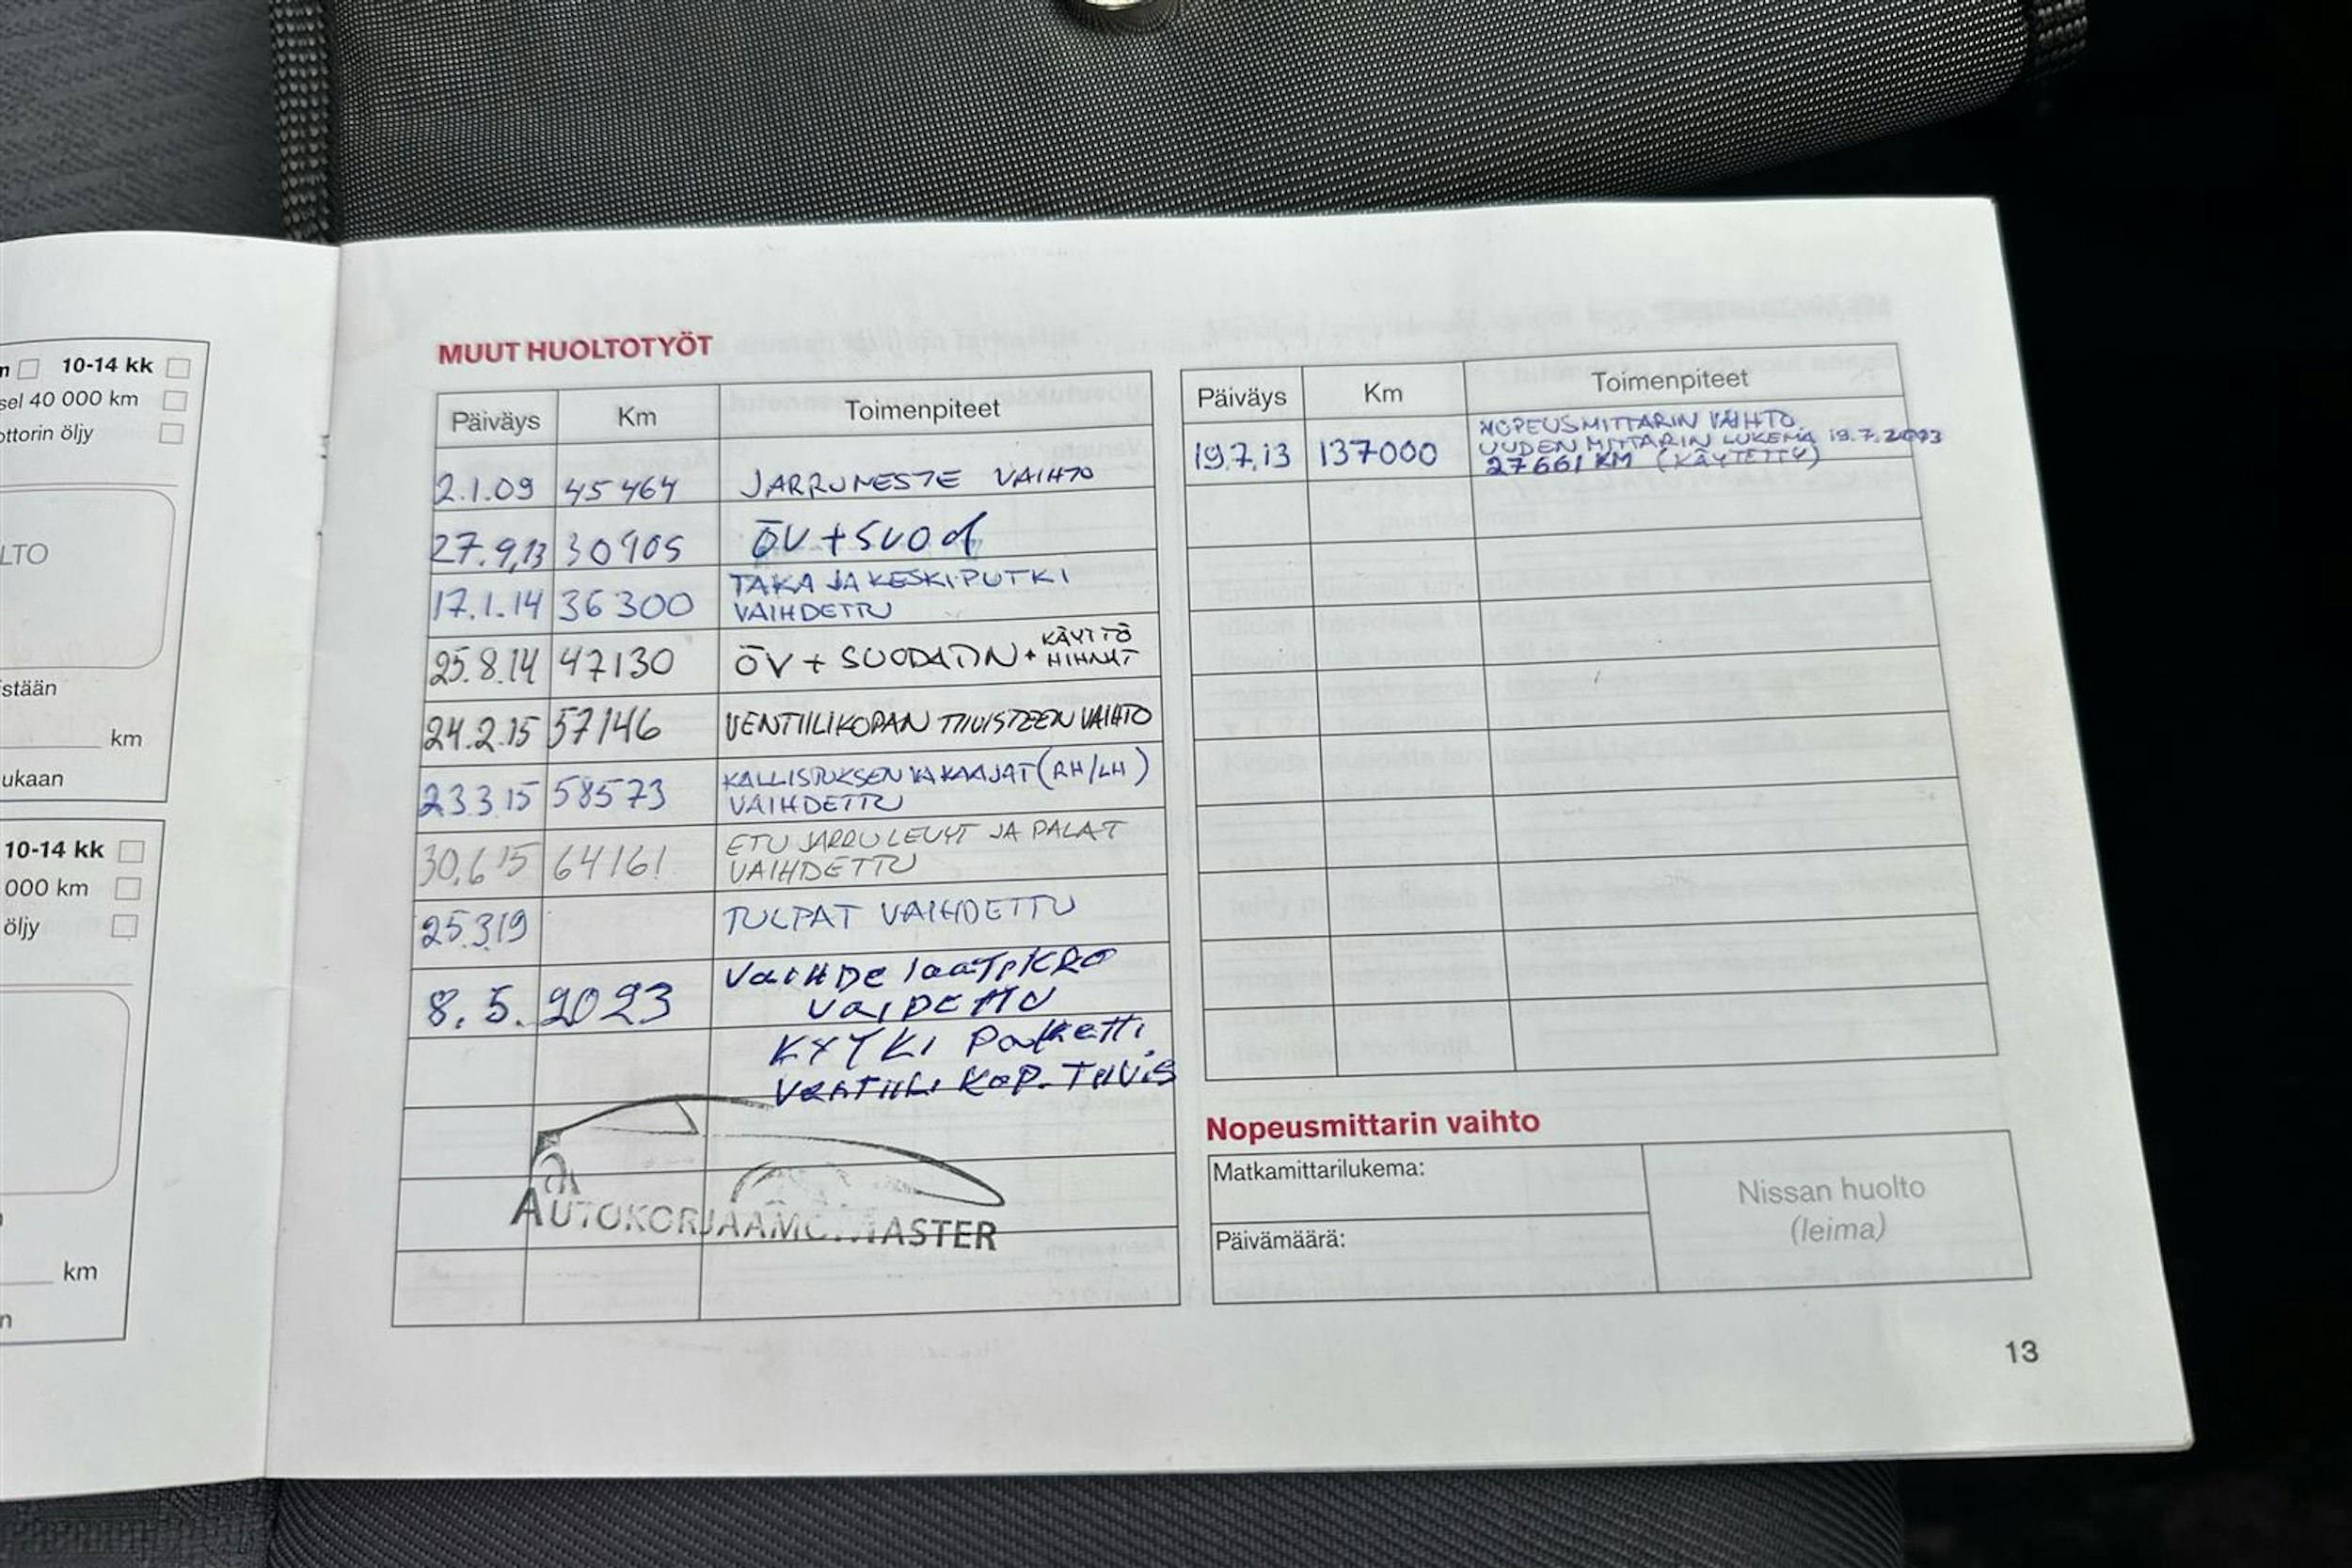 10-14 kk
sel 40 000 km
ottorin öljy
LTO
stään
km
ukaan
10-14 kk
000 km
öljy
km
n
MUUT HUOLTOTYÖT
Päiväys Km Toimenpiteet
2.1.09 45464 JARRUNESTE VAIHTO
27.9.13 30905 ÖV + SUOD
17.1.14 36300 TAKA JA KESKIPUTKI
VAIHDETTU
25.8.14 47130 ÖV + SUODATIN + KÄYTTÖ
HIHNAT
24.2.15 57146 VENTIILIKOPAN TIIVISTEEN VAIHTO
23.3.15 58573 KALLISTUKSENVAKAAJAT (RH/LH)
VAIHDETTU
30.6.15 64161 ETU JARRULEVYT JA PALAT
VAIHDETTU
25.3.19 TULPAT VAIHDETTU
8.5.2023 VAIHDE laaTiKRO
VAIDETTU
KYTKI Paketti
VENTIILI KOP. TIIVIS
AUTOKORJAAMO MASTER
Päiväys Km Toimenpiteet
19.7.13 137000 NOPEUSMITTARIN VAIHTO
UUDEN MITTARIN LUKEMA 19.7.2013
27661 KM (KÄYTETTY)
Nopeusmittarin vaihto
Matkamittarilukema:
Päivämäärä:
Nissan huolto
(leima)
13